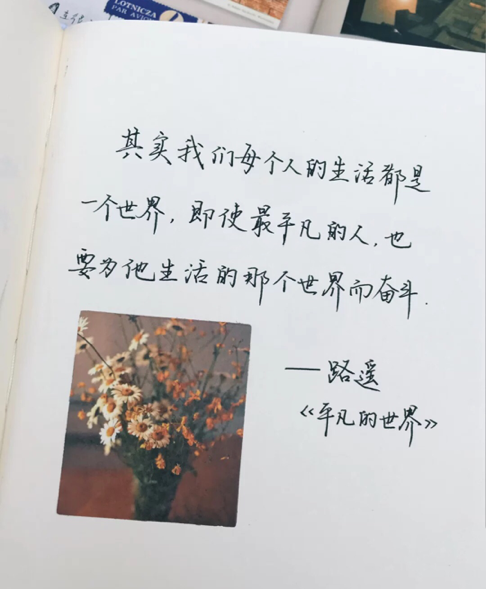 LOTNICZA
PAR AVION
其实我们每个人的生活都是
一个世界，即使最平凡的人，也
要为他生活的那个世界而奋斗.
——路遥
《平凡的世界》